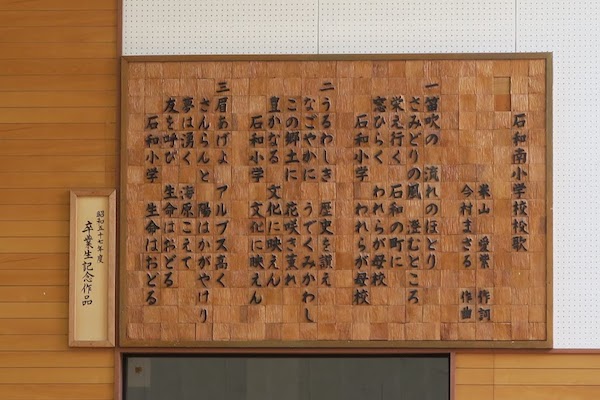 石和南小学校校歌
米山 愛紫 作詞
今村まさる 作曲
一 笛吹の 流れのほとり
さみどりの風 澄むところ
栄え行く 石和の町に
窓ひらく われらが母校
石和小学 われらが母校
二 うるわしき 歴史を讃え
なごやかに うでくみかわし
この郷土に 花咲き薫れ
豊かなる 文化に映えん
石和小学 文化に映えん
三 眉あげよ アルプス高く
さんらんと 陽はかがやけり
夢は湧く 海原こえて
友を呼び 生命はおどる
石和小学 生命はおどる
昭和五十七年度
卒業生記念作品